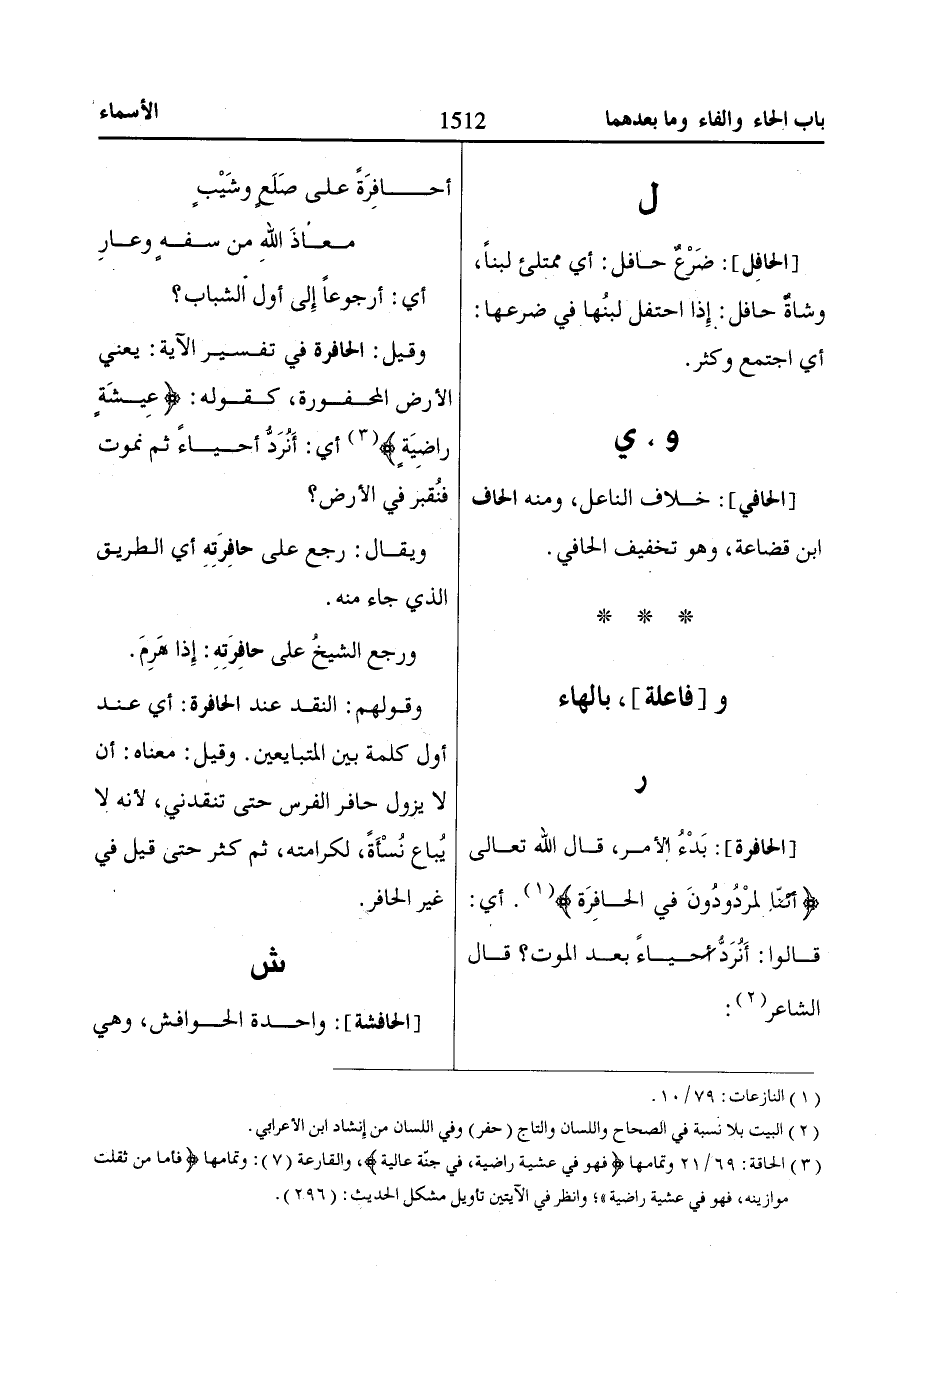 باب الحاء والفاء وما بعدهما 1512 الأسماء
ل
[الحافل]: ضَرْعٌ حافل: أي ممتلئ لبناً،
وشاةٌ حافل: إذا احتفل لبنُها في ضرعها:
أي اجتمع وكثر.
و . ي
[الحافي]: خلاف الناعل، ومنه الحاف
ابن قضاعة، وهو تخفيف الحافي.
* * *
و [فاعلة]، بالهاء
ر
[الحافرة]: بَدْءُ الأمر، قال الله تعالى
﴿أئنّا لمرْدُودُونَ في الحافرَة﴾(١). أي:
قالوا: أَنُرَدُّ أحياءً بعد الموت؟ قال
الشاعر(٢):
أحافِرَةً على صَلَعٍ وشَيْبٍ
معاذَ الله من سفهٍ وعارِ
أي: أرجوعاً إلى أول الشباب؟
وقيل: الحافرة في تفسير الآية: يعني
الأرض المحفورة، كقوله: ﴿عيشَةٍ
راضيَةٍ﴾(٣) أي: أَنُرَدُّ أحياءً ثم نموت
فنُقبر في الأرض؟
ويقال: رجع على حافرَتِه أي الطريق
الذي جاء منه.
ورجع الشيخُ على حافِرَتِه: إذا هَرِمَ.
وقولهم: النقد عند الحافرة: أي عند
أول كلمة بين المتبايعين. وقيل: معناه: أن
لا يزول حافر الفرس حتى تنقدني، لأنه لا
يُباع نُسْأَةً، لكرامته، ثم كثر حتى قيل في
غير الحافر.
ش
[الحافشة]: واحدة الحوافش، وهي
(١) النازعات: ٧٩/ ١٠.
(٢) البيت بلا نسبة في الصحاح واللسان والتاج (حفر) وفي اللسان من إنشاد ابن الأعرابي.
(٣) الحاقة: ٦٩/ ٢١ وتمامها ﴿فهو في عشية راضية، في جنّة عالية﴾، والقارعة (٧): وتمامها ﴿فأما من ثقلت
موازينه، فهو في عشية راضية﴾؛ وانظر في الآيتين تأويل مشكل الحديث: (٢٩٦).